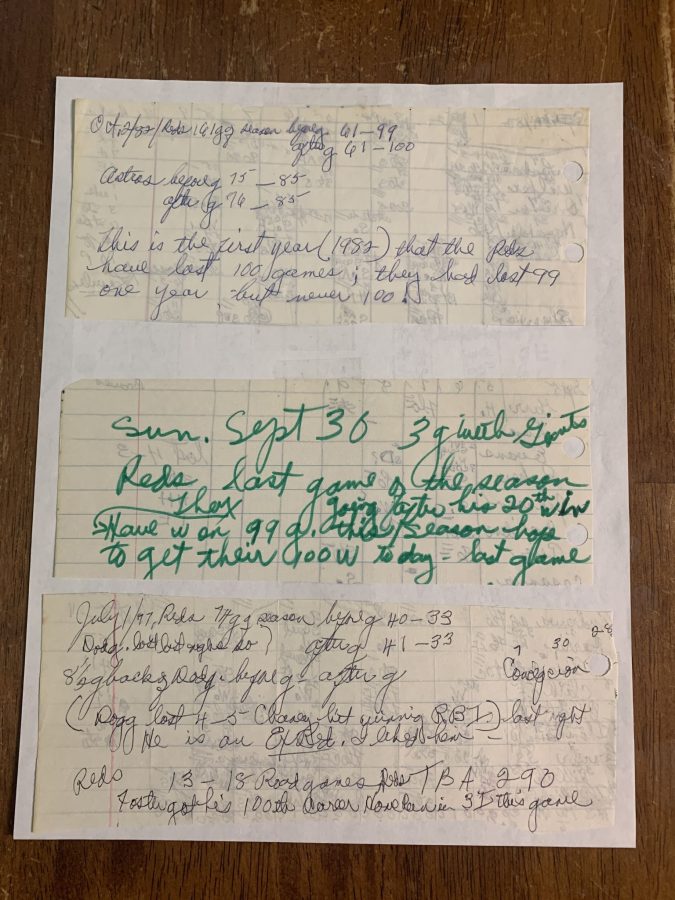 Oct, 2/82/Reds 161 g g season before g 61-99
after g 61-100
Astros before g 75-85
after g 76-85
This is the first year (1982) that the Reds
have lost 100 games; they had lost 99
one year, but never 100!
Sun. Sept 30 3 g with Giants
Reds last game of the season
They going after his 20th win
Have won 99 g. this season hope
to get their 100 W today - last game
July 1/77, Reds 74 g g season before g 40-33
Dodg. lost last night so after g 41-33
8 1/2 g back of Dodg. before g - after g
7 30 28
Concepcion
(Dodg lost 4-5 Chaney hit winning R.B.I.) last night
He is an Ex Red. I liked him -
Reds 13-18 Road games Reds T B A 290
Foster got his 100th Career Home run in 3 I this game